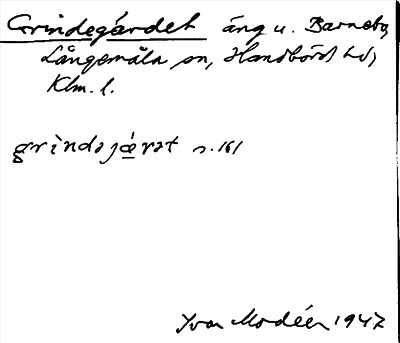 Grindegärdet äng u. Barnebo,
Långemåla sn, Handbörds hd,
Klm. l.
grindəjæ̀rət s. 161
Ivar Modéer 1947